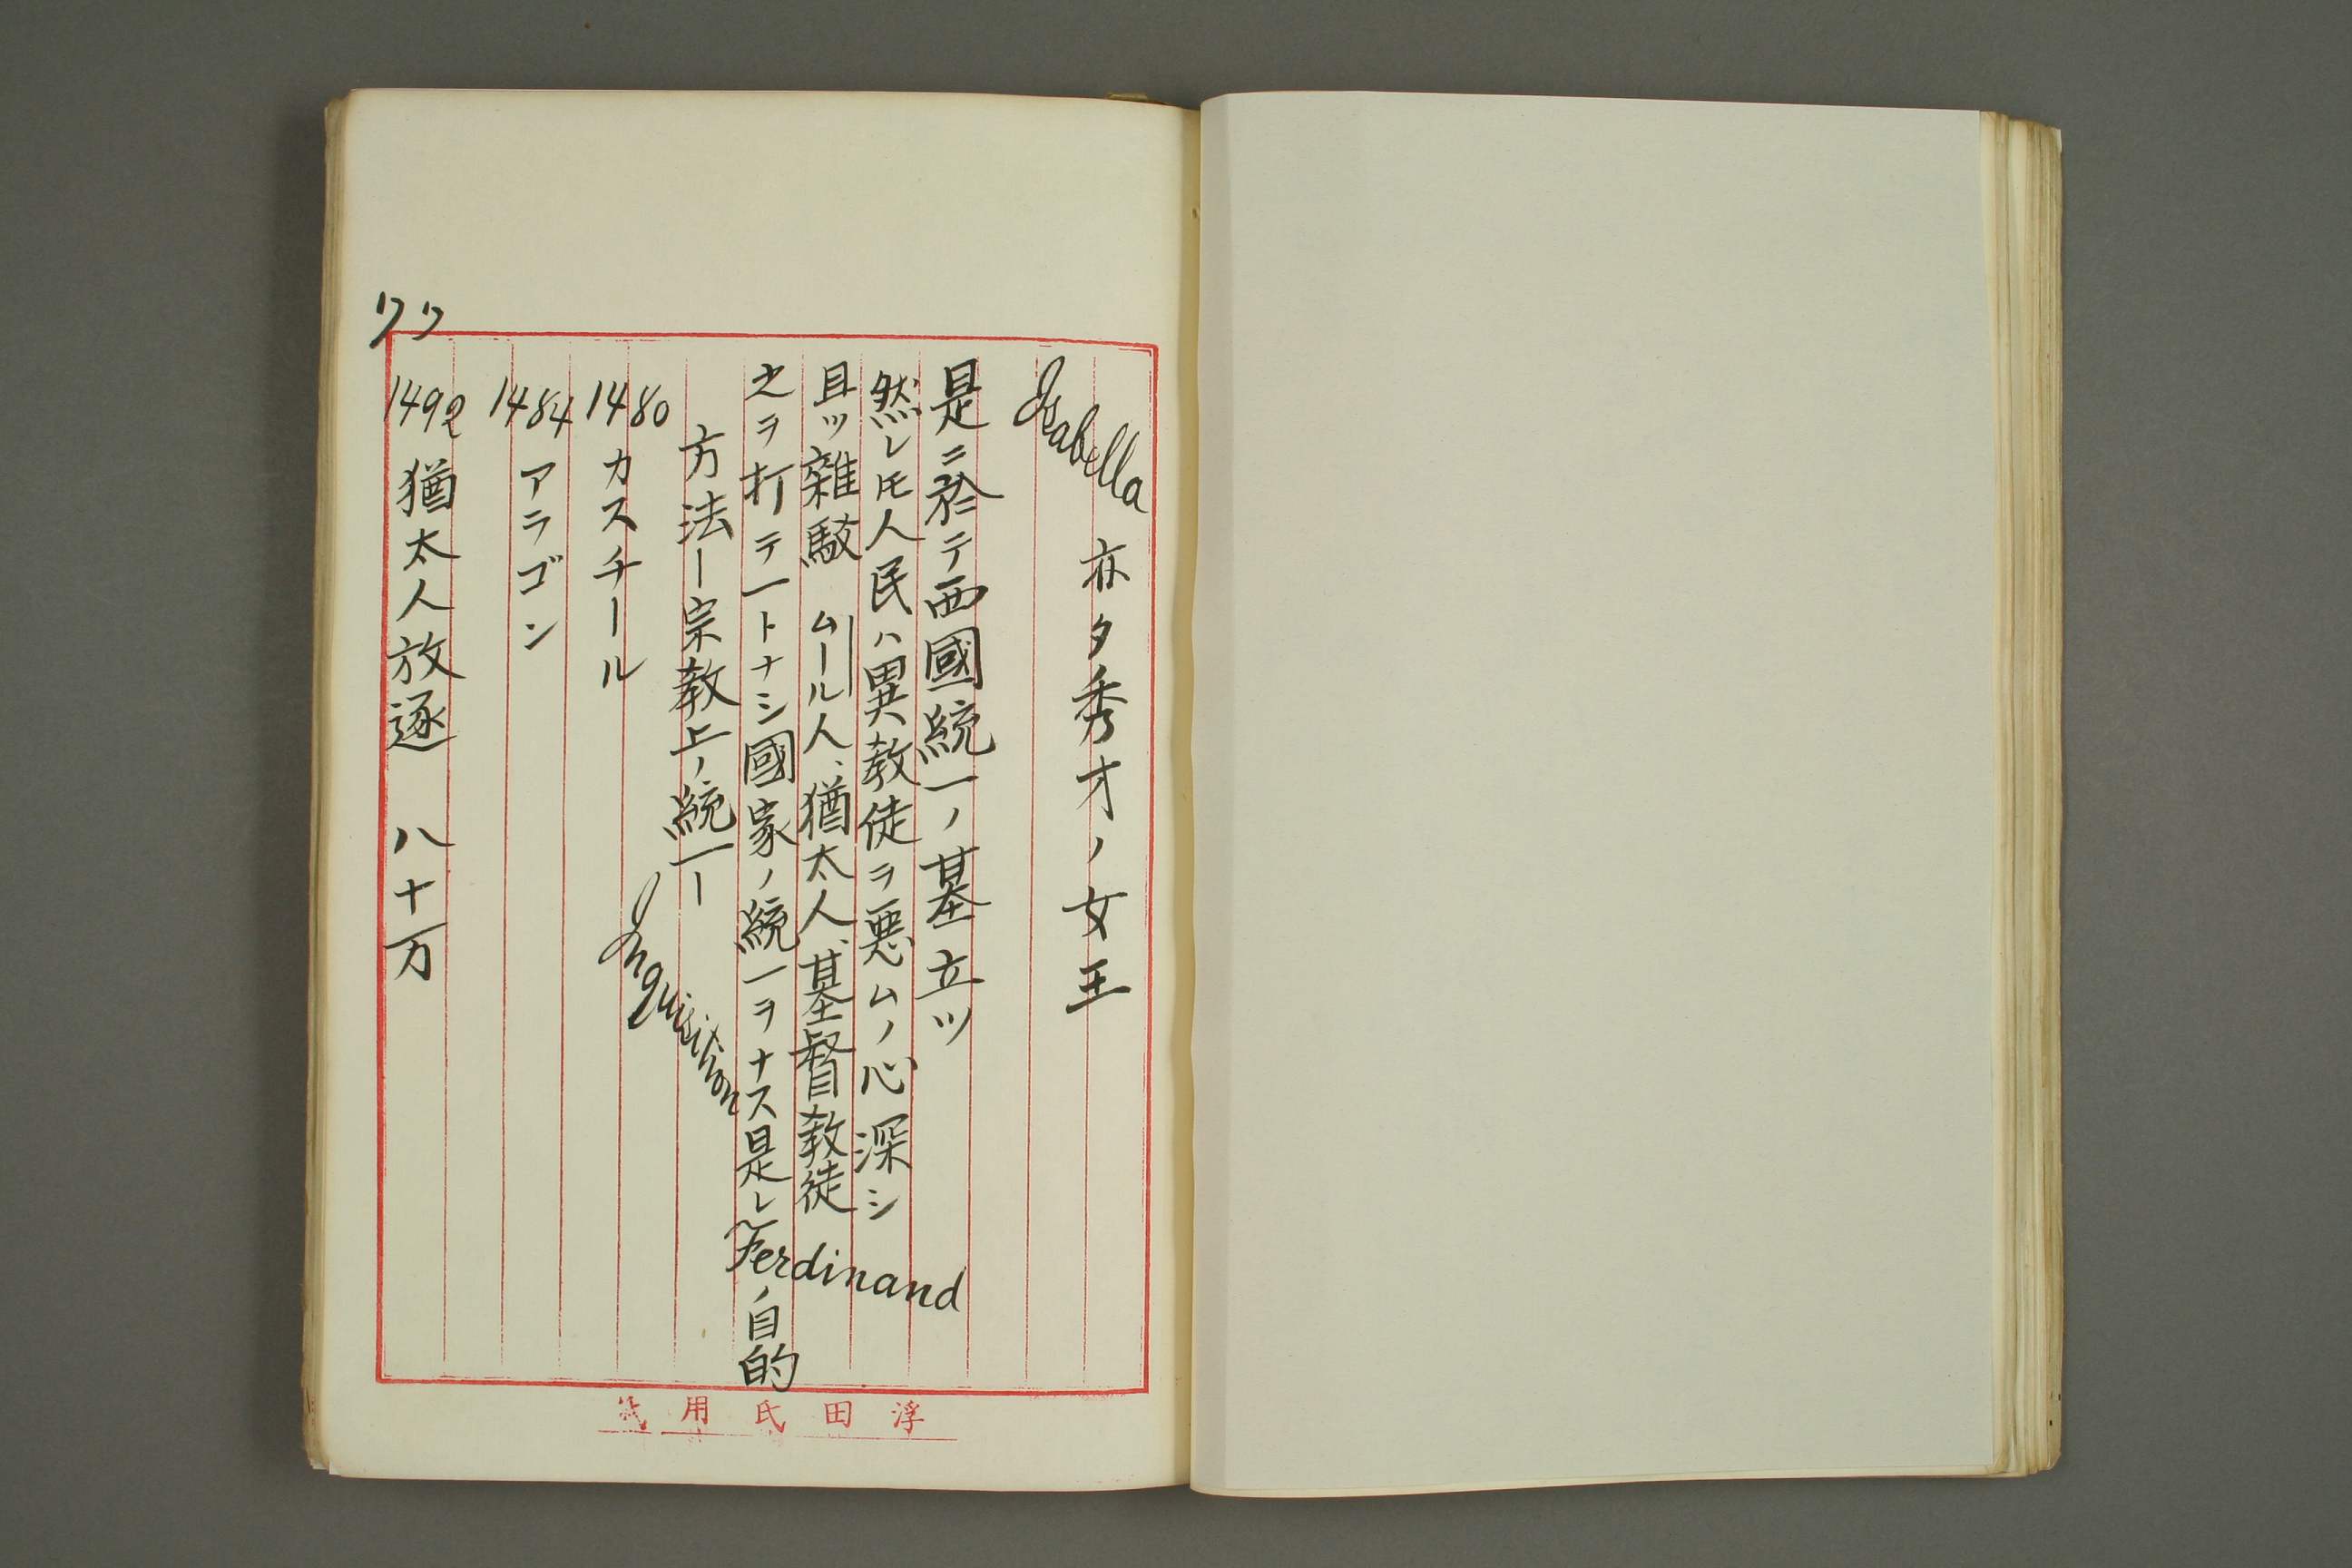 Isabella 亦タ秀才ノ女王
是ニ於テ西國統一ノ基立ツ
然レ𪜈人民ハ異教徒ヲ悪ムノ心深シ
且ツ雜駁 ムール人、猶太人、基督教徒
之ヲ打テ一トナシ國家ノ統一ヲナス是レFerdinandノ目的
方法ー宗教上ノ統一ー Inquisition
1480 カスチール
1484 アラゴン
1492 猶太人放逐 八十万
77
浮田氏用箋